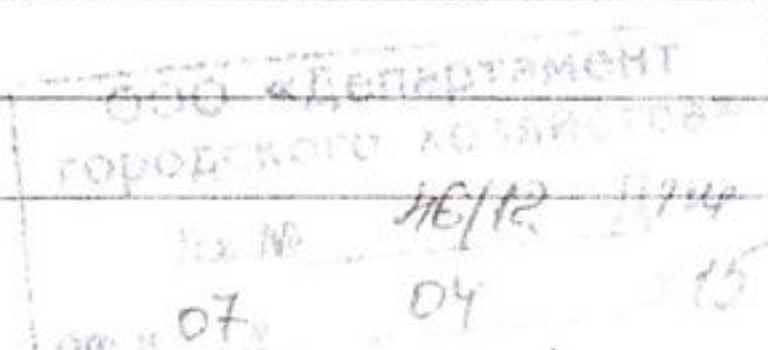 ООО «Департамент
городского хозяйства»
Вх № 46/12
от « 07 » 04 15